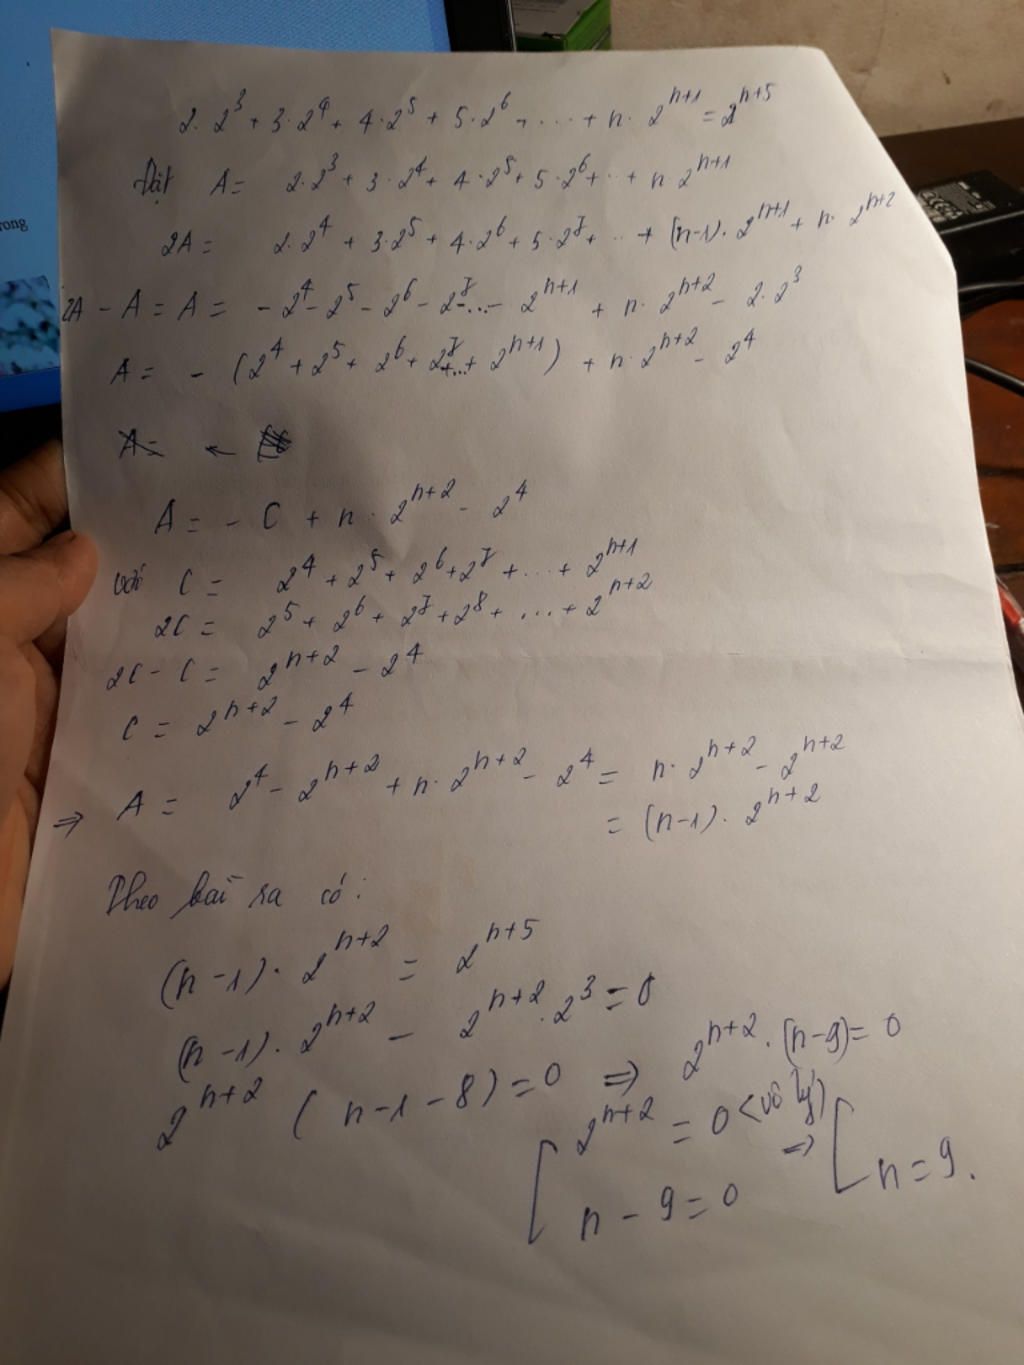 rong
2. 2^3 + 3·2^4 + 4·2^5 + 5·2^6 + ... + n· 2^{n+1} = 2^{n+5}
Đặt A = 2·2^3 + 3·2^4 + 4·2^5 + 5·2^6 + ·· + n·2^{n+1}
2A = 2·2^4 + 3·2^5 + 4·2^6 + 5·2^7 + ·· + (n-1)·2^{n+1} + n· 2^{n+2}
2A - A = A = - 2^4 - 2^5 - 2^6 - 2^7 -...- 2^{n+1} + n· 2^{n+2} - 2·2^3
A = - (2^4 + 2^5 + 2^6 + 2^7 +...+ 2^{n+1}) + n·2^{n+2} - 2^4
A = - C + n· 2^{n+2} - 2^4
với C = 2^4 + 2^5 + 2^6 + 2^7 + ... + 2^{n+1}
2C = 2^5 + 2^6 + 2^7 + 2^8 + ... + 2^{n+2}
2C - C = 2^{n+2} - 2^4
C = 2^{n+2} - 2^4
⇒ A = 2^4 - 2^{n+2} + n· 2^{n+2} - 2^4 = n· 2^{n+2} - 2^{n+2}
= (n-1)· 2^{n+2}
Theo bài ra có:
(n-1)· 2^{n+2} = 2^{n+5}
(n-1)· 2^{n+2} - 2^{n+2}·2^3 = 0
2^{n+2} (n-1-8) = 0 ⇒ 2^{n+2}·(n-9) = 0
[ 2^{n+2} = 0 <vô lý)
n - 9 = 0 ⇒ [ n = 9.